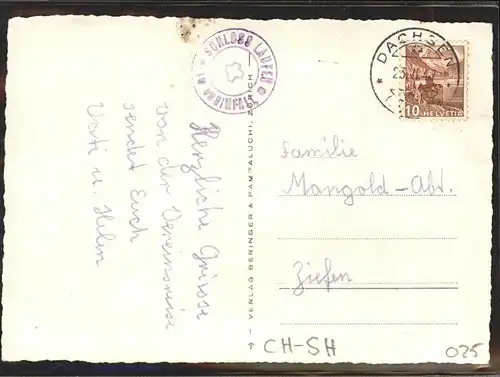 SCHLOSS LAUFEN
AM RHEINFALL
Herzliche Grüsse
von der Vereinsreise
sendet Euch
Vati u. Helen
– VERLAG BERINGER & PAMPALUCHI, ZÜRICH
DACHSEN
10
HELVETIA
Familie
Mangold-Abt.
Ziefen
CH-SH
025